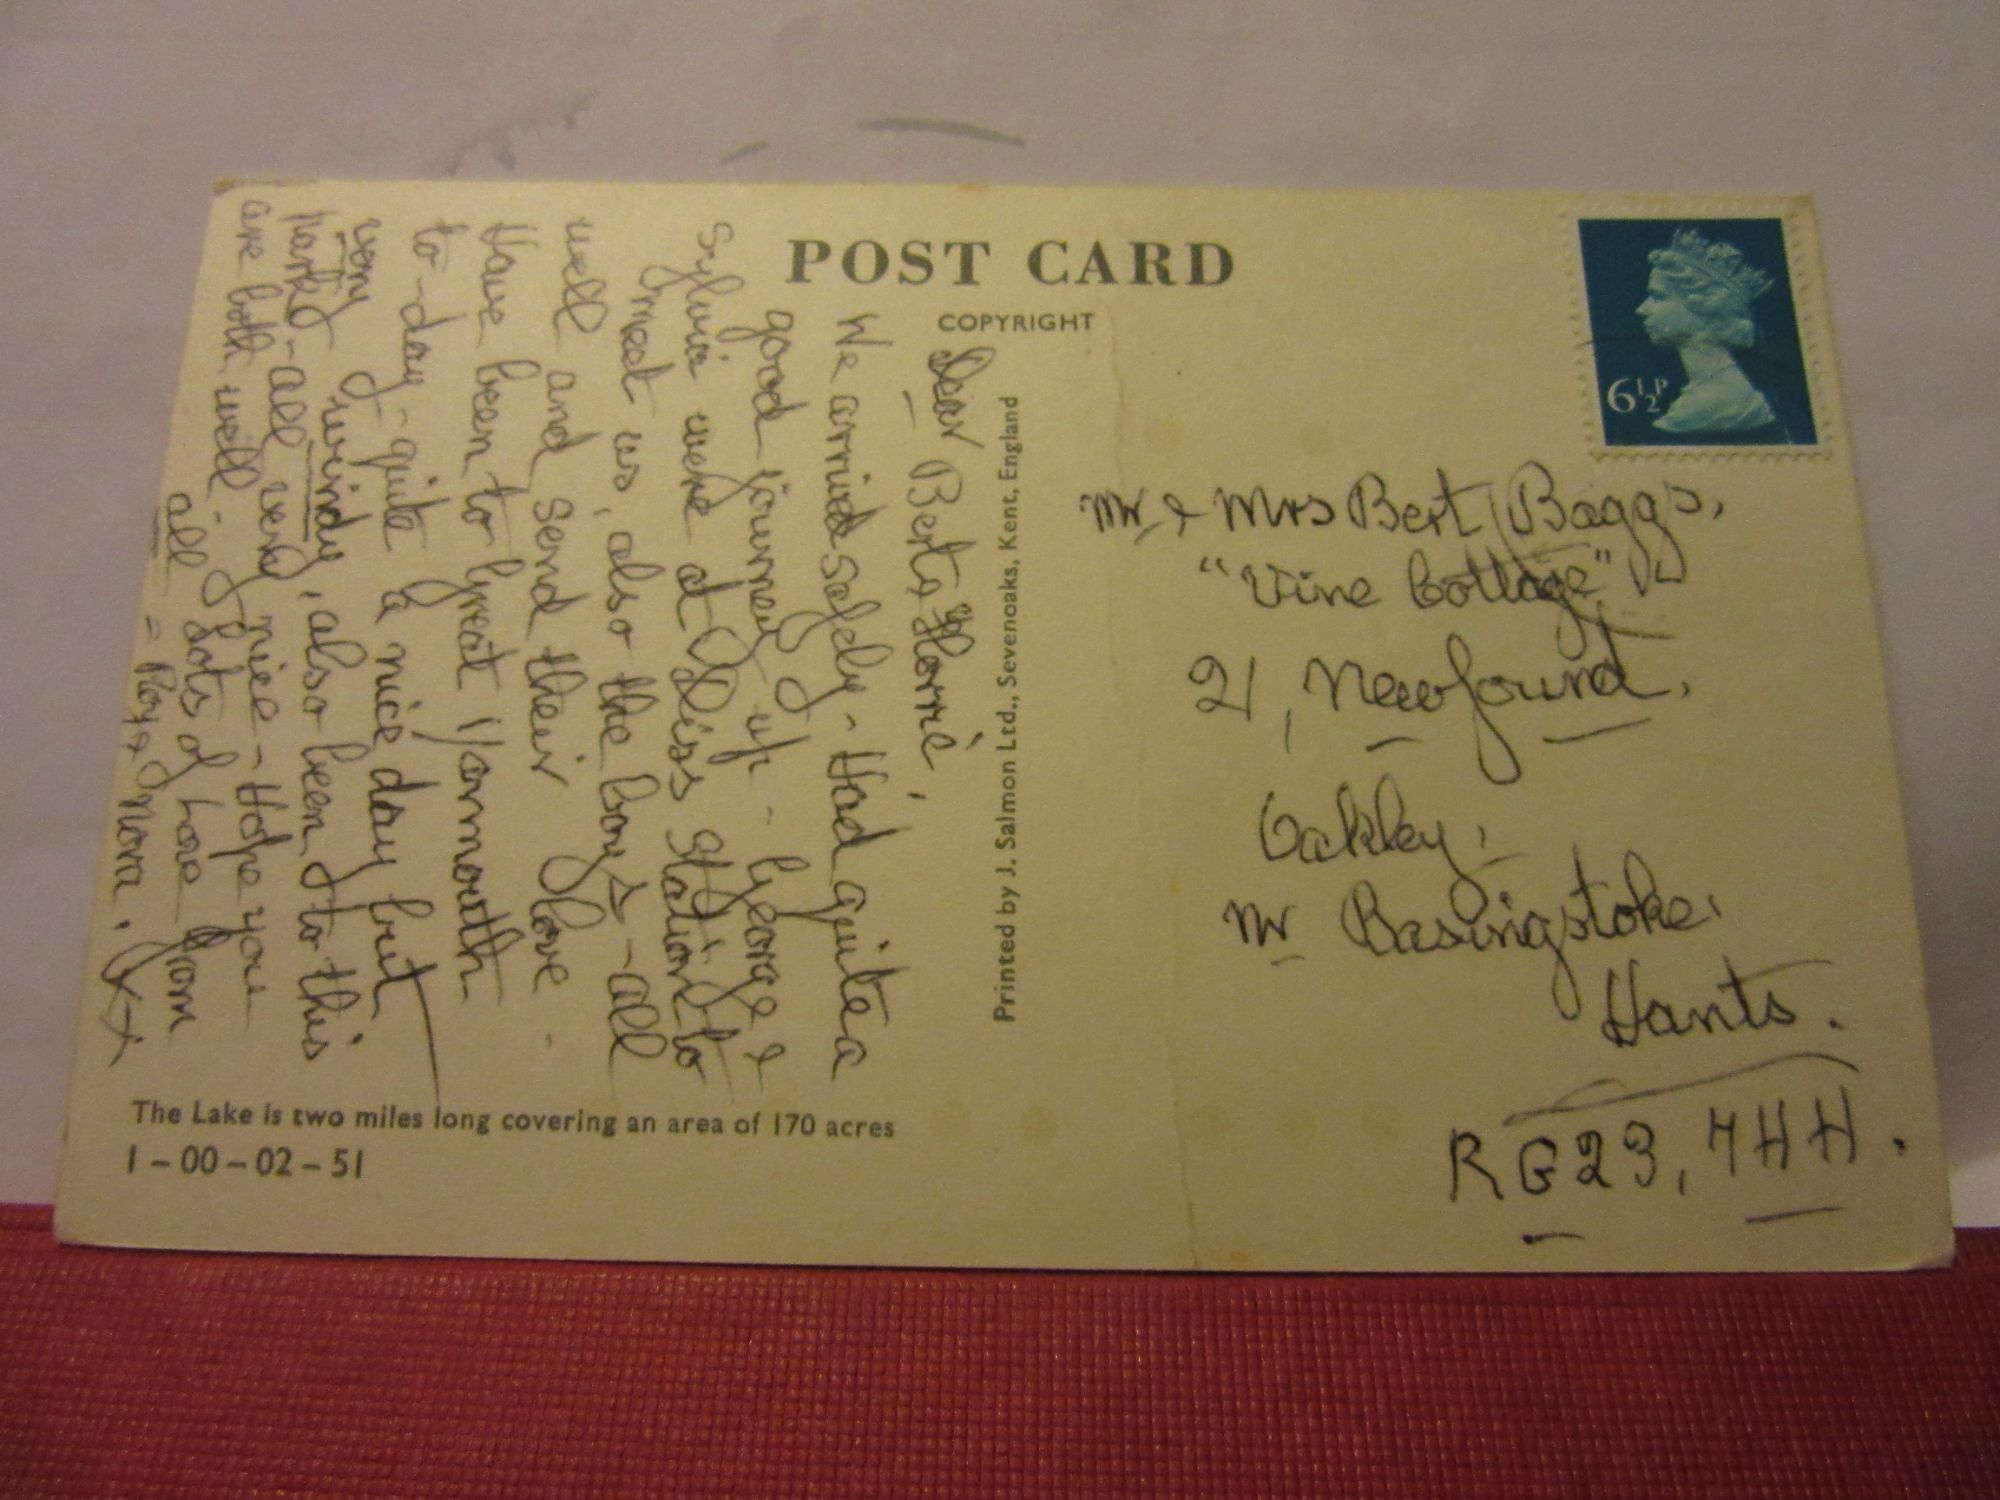 POST CARD
COPYRIGHT
6½P
Dear Bert & Florrie,
We arrived safely - Had quite a
good journey up - George &
Sylvia were at Diss Station to
meet us, also the boys - all
well and send their love.
Have been to Great Yarmouth
to-day - quite a nice day but
very windy, also been to this
park - all very nice - Hope you
are both well. Lots of Love from
all = Roy & Nora. xx
Printed by J. Salmon Ltd., Sevenoaks, Kent, England
Mr & Mrs Bert Baggs,
"Vine Cottage"
21, Newfound,
Oakley,
Nr Basingstoke.
Hants.
RG23, 7HH.
The Lake is two miles long covering an area of 170 acres
1-00-02-51